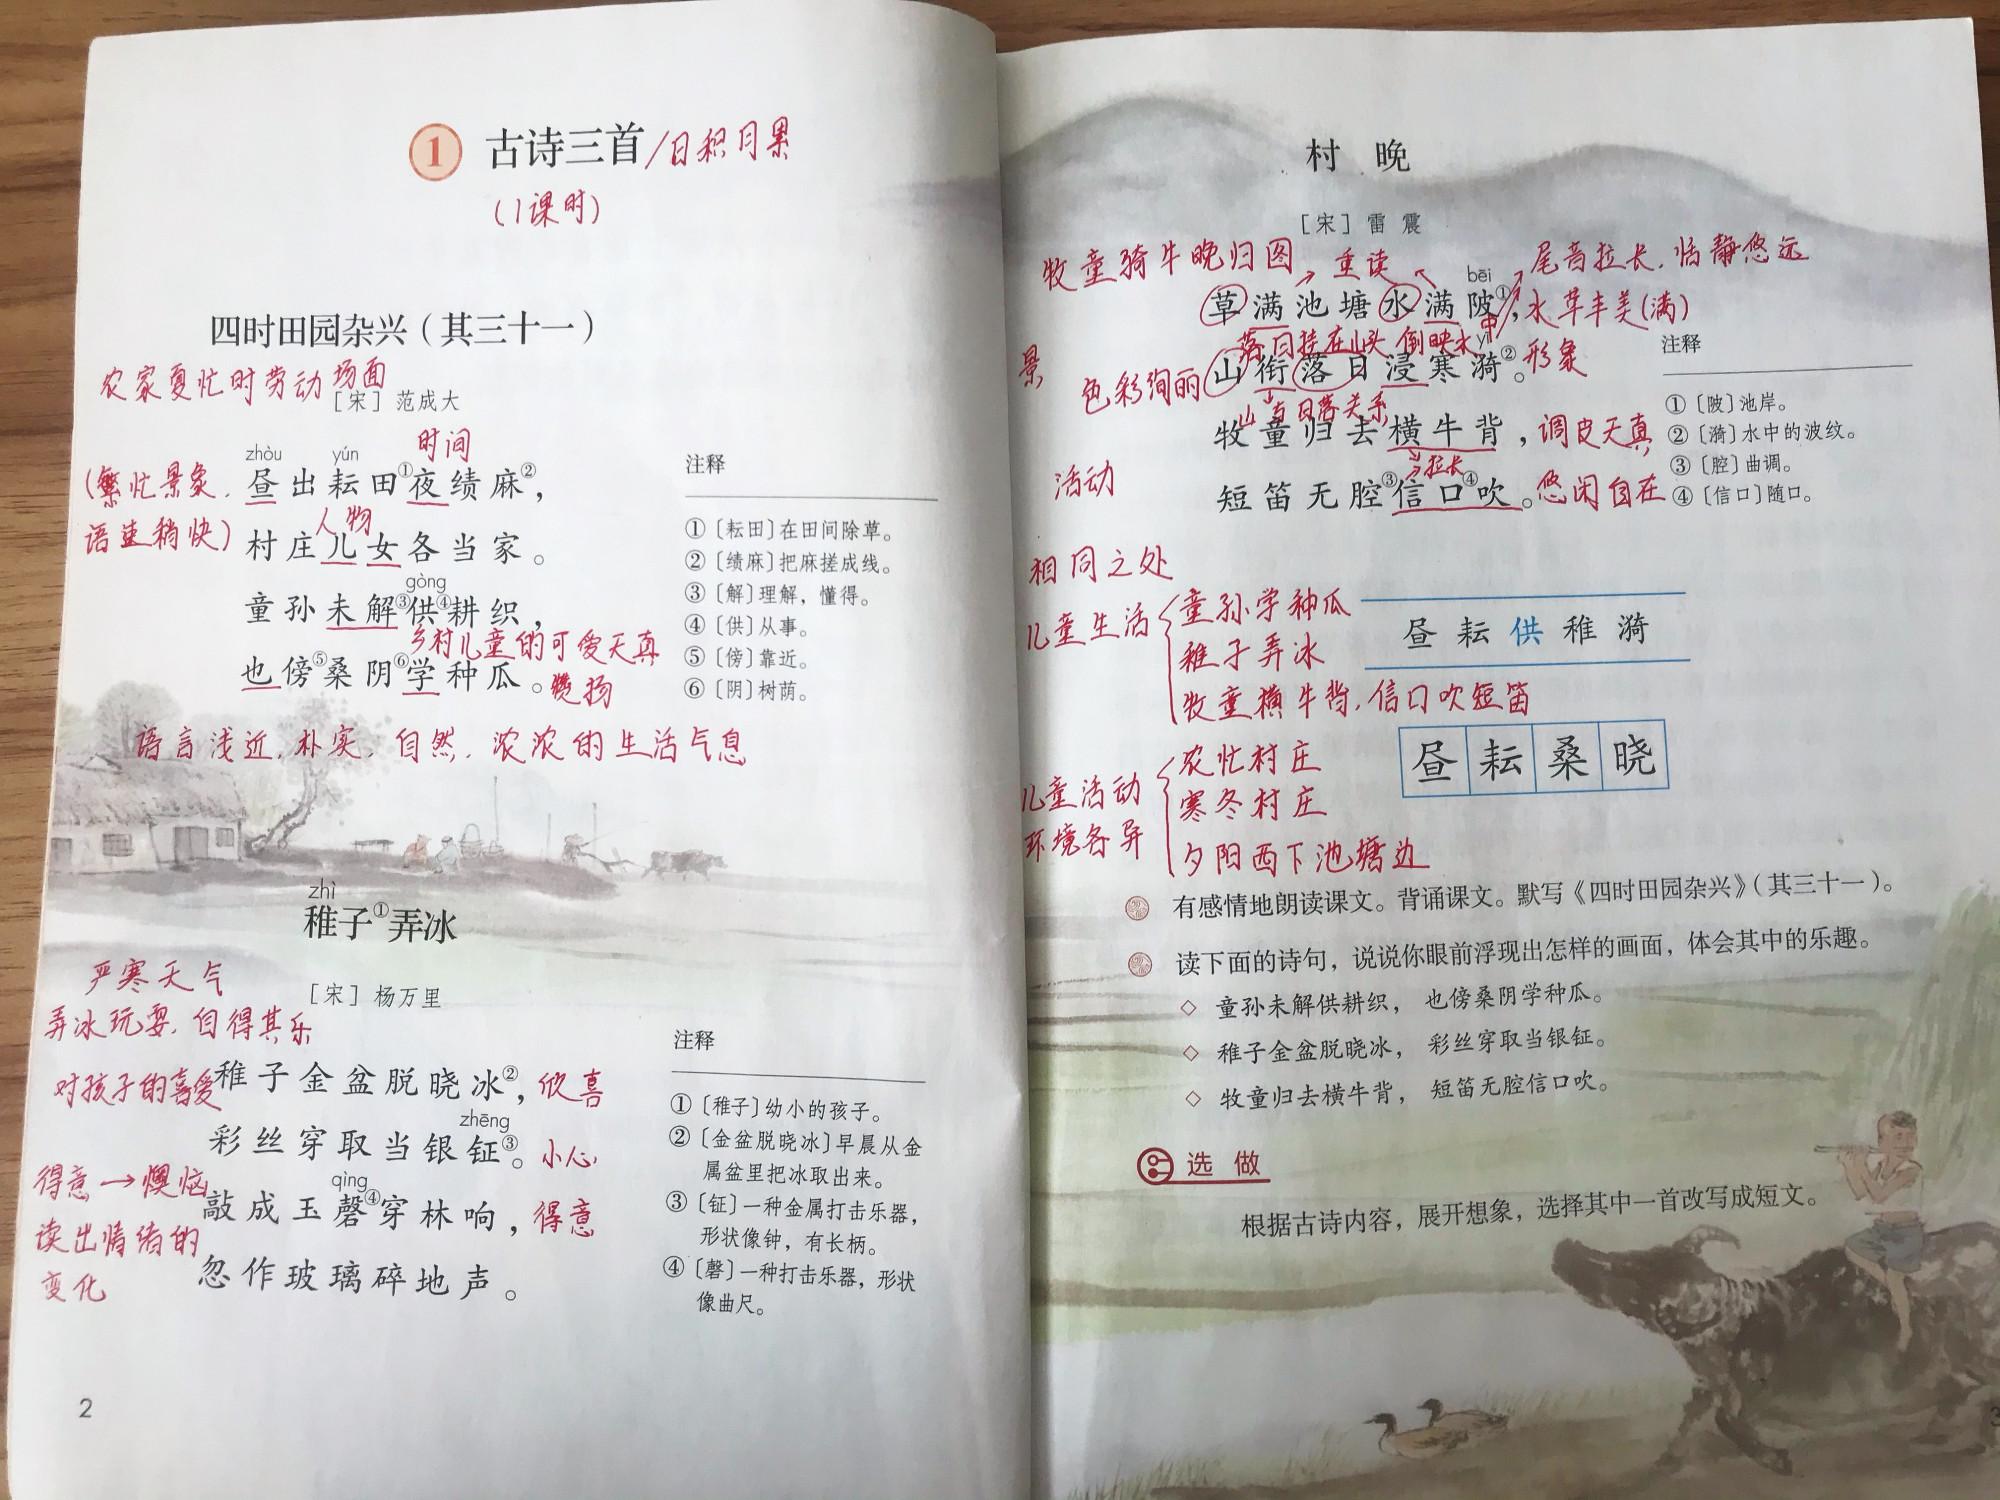 1 古诗三首/日积月累
(1课时)
四时田园杂兴(其三十一)
农家夏忙时劳动场面
[宋] 范成大
时间
zhòu yún
(繁忙景象.
昼出耘田①夜绩麻②,
语速稍快)
人物
村庄儿女各当家。
gòng
童孙未解③供④耕织,
乡村儿童的可爱天真
也傍⑤桑阴⑥学种瓜。赞扬
语言浅近.朴实.自然.浓浓的生活气息
注释
①〔耘田〕在田间除草。
②〔绩麻〕把麻搓成线。
③〔解〕理解,懂得。
④〔供〕从事。
⑤〔傍〕靠近。
⑥〔阴〕树荫。
zhì
稚子①弄冰
严寒天气
[宋] 杨万里
弄冰玩耍.自得其乐
对孩子的喜爱
稚子金盆脱晓冰②,欣喜
zhēng
彩丝穿取当银钲③。小心
得意→懊恼
qìng
敲成玉磬④穿林响,得意
读出情绪的
变化
忽作玻璃碎地声。
注释
①〔稚子〕幼小的孩子。
②〔金盆脱晓冰〕早晨从金
属盆里把冰取出来。
③〔钲〕一种金属打击乐器,
形状像钟,有长柄。
④〔磬〕一种打击乐器,形状
像曲尺。
2
村晚
[宋] 雷震
牧童骑牛晚归图→重读
尾音拉长.恬静悠远
bēi
草满池塘水满陂①,水草丰美(满)
落日挂在山头倒映水中
yī
景
色彩绚丽
山衔落日浸寒漪②。形象
山与日落关系
牧童归去横牛背,调皮天真
拉长
活动
短笛无腔③信口④吹。悠闲自在
注释
①〔陂〕池岸。
②〔漪〕水中的波纹。
③〔腔〕曲调。
④〔信口〕随口。
相同之处
儿童生活
童孙学种瓜
稚子弄冰
牧童横牛背.信口吹短笛
昼耘供稚漪
昼耘桑晓
儿童活动
环境各异
农忙村庄
寒冬村庄
夕阳西下池塘边
有感情地朗读课文。背诵课文。默写《四时田园杂兴》(其三十一)。
读下面的诗句,说说你眼前浮现出怎样的画面,体会其中的乐趣。
◇ 童孙未解供耕织, 也傍桑阴学种瓜。
◇ 稚子金盆脱晓冰, 彩丝穿取当银钲。
◇ 牧童归去横牛背, 短笛无腔信口吹。
选做
根据古诗内容,展开想象,选择其中一首改写成短文。
3